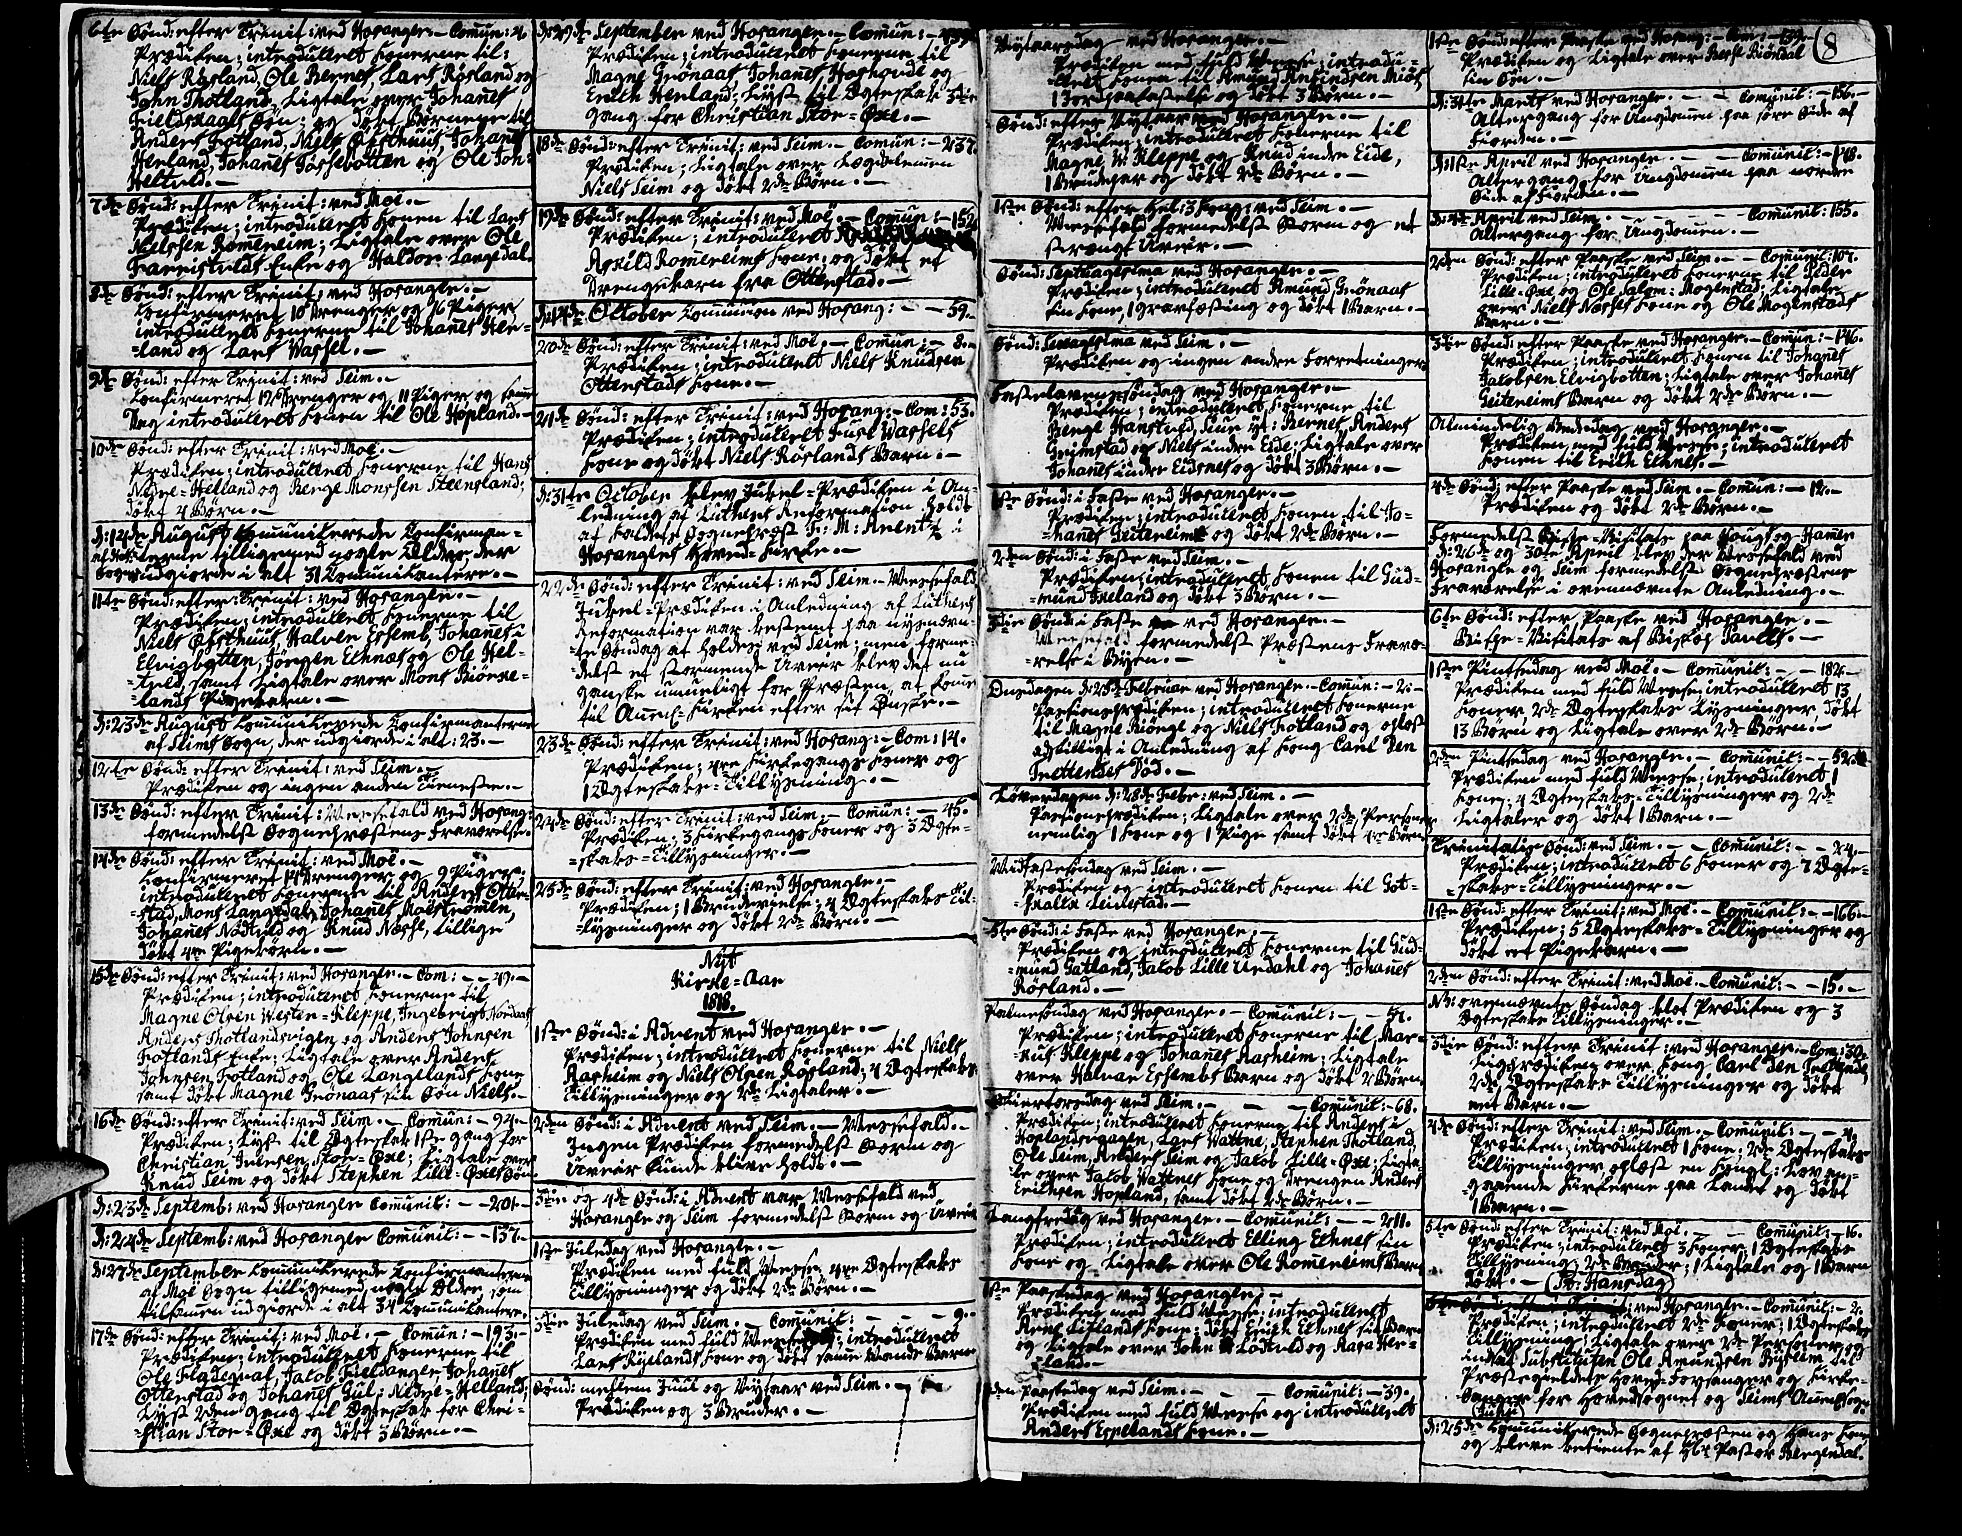 6te Sønd: efter Trinit: ved Hosanger. - Comun: 4.
Prædiken; introduceret Konerne til:
Niels Røsland, Ole Bernes, Lars Røsland og
John Thotland, Ligtale over Johannes
og døbt Børnene til
Anders Fotland, Niels Johannes
Henland, Johannes og Ole Joh:
Heltvid. -
7de Sønd: efter Trinit: ved Moë. -
Prædiken; introduceret Konen til Lars
Nielssen Romereim; Ligtale over Ole
Enke og Haldor Langedal.
8de Sønd: efter Trinit: ved Hosanger. -
Confirmeret 10 Drenger og 16 Piger;
introduceret Konerne til Johannes Hen-
=land og Lars Vassel. -
9de Sønd: efter Trinit: ved Seim. -
Confirmeret 12 Drenger og 11 Piger, og samme
Dag introduceret Konen til Ole Hopland. -
10de Sønd: efter Trinit: ved Moë. -
Prædiken; introduceret Konerne til Hans
Nedre-Helland og Berge Monssen Steensland;
døbt 4 Børn. -
d: 14de August Communicerede Confirman-
terne tilligemed nogle Ældre, der
udgiorde i alt 31 Comunikantere. -
11te Sønd: efter Trinit: ved Hosanger. -
Prædiken; introduceret Konerne til
Niels Østhuus, Halven Essemb, Johannes i
Elvigbotten, Jørgen Echnæs og Ole Hel-
=tveld samt Ligtale over Mons Biørne-
=lands Pigebarn. -
d: 23de August Comunicerede Confirmanterne
af Seims Sogn, der udgiorde i alt: 23. -
12te Sønd: efter Trinit: ved Seim. -
Prædiken og ingen anden Tieneste. -
13de Sønd: efter Trinit: Messefald ved Hosang:
formedelst Sognepræstens Fraværelse. -
14de Sønd: efter Trinit: ved Moë. -
Confirmeret 14 Drenger og 9 Piger;
introduceret Konerne til Anders Otter-
=stad, Mons Langedal, Johannes Moestrømen,
Johannes Nødtvid og Knud Næsse, tillige
døbt Pigebørn. -
15de Sønd: efter Trinit: ved Hosanger. - Com: - - 49. -
Prædiken; introduceret Konerne til
Magne Olsen Vester=Kleppe, Ingebrigt Nordaas,
Anders Thotlandsvigen og Anders Johnsen
Fotlands Enke; Ligtale over Anders
Johnsen Fotland og Ole Langelands Kone
samt døbt Magne Grønaas sin Søn Niels. -
16de Sønd: efter Trinit: ved Seim. - Comun: - 94. -
Prædiken; Lyst til Ægteskab 1ste gang for
Christian Iversen Stor=Øxe; Ligtale over
Knud Seim og døbt Stephen Lille-Øxes Søn
d: 23de Septemb: ved Hosanger Comunit: - - 201. -
d: 24de Septemb: ved Hosanger Comunit: - - 137. -
d: 27de September Comunicerede Confirmanterne
af Moë Sogn tilligemed nogle Ældre, som
tilsamen udgiorde i alt 34 Comunicantere. -
17de Sønd: efter Trinit: ved Moë. - Comun: - 193. -
Prædiken; introduceret Konerne til
Ole Fladeqval, Jacob Fieldanger, Johannes
Ottenstad og Johannes Gul: Nedre-Helland;
Lyst 2den gang til Ægteskab for Chri-
=stian Stor-Øxe og døbt 3 Børn. -
d: 29de September ved Hosanger. - Comun: -
Prædiken; introduceret Konerne til
Magne Grønaas, Johannes Hoshovde og
Erich Henland; Lyst til Ægteskab 3die
gang for Christian Stor-Øxe. -
18de Sønd: efter Trinit: ved Seim. Comun: - 237.
Prædiken; Ligtale over Logdølemen
Niels Seim og døbt 2de Børn. -
19de Sønd: efter Trinit: ved Moë. - Comun: - 152
Prædiken; introduceret
Askild Romereims Kone; og døbt et
Drengebarn fra Ottenstad. -
d: 14de October Comunion ved Hosang: - - 59. -
20de Sønd: efter Trinit: ved Moë, - Comun: - 8. -
Prædiken; introduceret Niels Knudsen
Ottenstads Kone. -
21de Sønd: efter Trinit: ved Hosang: - Com: 53.
Prædiken; introduceret Vassels
Kone og døbt Niels Røslands Barn. -
d: 31te October blev Jubel=Prædiken i An-
ledning af Luthers Reformation holdt
af Sognepræst Fr: M: Arentz i
Hosangers Hoved-Kirke. -
22de Sønd: efter Trinit: ved Seim. - Messefald
Jubel=Prædiken i Anledning af Luthers
Reformation var bestemt paa nysnævn-
=te Søndag at holdes ved Seim; men forme-
delst et stormende Uveir blev det nu
ganske umueligt for Præsten at komme
til Annex=Kirken efter sit Ønske. -
23de Sønd: efter Trinit: ved Hosang: - Com: 14.
Prædiken; Kirkegangs Koner og
1 Ægteskabs=Tillysning. -
24de Sønd: efter Trinit: ved Seim, - Comun: - 45. -
Prædiken; 3 Kirkegangs Koner og 3 Ægte-
=skabs=Tillysninger. -
25de Sønd: efter Trinit: ved Hosanger. -
Prædiken; 1 Brudevielse; 4 Ægteskabs Til-
=lysninger og døbt 2de Børn. -
Nyt
Kirke=Aar
1818.
1ste Sønd: i Advent ved Hosanger. -
Prædiken; introduceret Konerne til Niels
Aasheim og Niels Olsen Røsland; 4 Ægteskabs
Tillysninger og 2de Ligtaler. -
2den Sønd: i Advent ved Seim. - Messefald. -
Ingen Prædiken formedelst Storm og
Uveir kunde blive holdt. -
3die og 4de Sønd: i Advent var Messefald ved
Hosanger og Seim formedelst Storm og Uveir
1ste Juledag ved Hosanger. -
Prædiken med fuld Messe, Ægteskabs
Tillysninger og døbt 2de Børn. -
3die Juledag ved Seim. - Comunit: - - - 9. -
Prædiken med fuld Messe; introduceret
Lars Kone og døbt samme Mands Barn
Sønd: mellem Juul og Nytaar ved Seim. -
Prædiken og 3 Bruder. -
Nytaarsdag ved Hosanger. -
Prædiken med fuld Messe; introdu-
=ceret Konen til Amund Miøs,
1 Jordspaakastelse og døbt 3 Børn. -
Sønd: efter Nytaar ved Hosanger. -
Prædiken; introduceret Konerne til
Magne Kleppe og Knud indre Eide,
1 Brudepar og døbt 2de Børn. -
1ste Sønd: efter Hel: 3 Kong: ved Seim. -
Messefald formedelst Storm og et
strengt Uveir. -
Sønd: Septuagesima ved Hosanger. -
Prædiken; introduceret Amund Grønaas
sin Kone, 1 Gravfæsting og døbt 1 Barn. -
Sønd: Sexagesima ved Seim. -
Prædiken og ingen andre Forretninger
Fastelavenssøndag ved Hosanger. -
Prædiken; introduceret Konerne til
Berge Bernes, Anders
Greimstad og Niels indre Eide; Ligtale over
Johannes indre Eidsnes og døbt 3 Børn. -
1ste Sønd: i Faste ved Hosanger. -
Prædiken; introduceret Konen til Jo-
=hannes Geitereim og døbt 2de Børn. -
2den Sønd: i Faste ved Seim. -
Prædiken; introduceret Konen til Gud-
=mund og døbt 3 Børn. -
3die Sønd: i Faste ved Hosanger. -
Messefald formedelst Præstens Fravæ-
=relse i Byen. -
Onsdagen d: 25de Februar ved Hosanger. - Comun: - 2. -
Passionsprædiken; introduceret Konerne
til Magne Kiønge og Niels Fotland og oplæst
adskilligt i Anledning af Kong Carl den
Trettendes Død. -
Løverdagen d: 28de Febr: ved Seim. -
Passionsprædiken; Ligtale over 2de Personer
nemlig 1 Kone og 1 Pige samt døbt Børn
Midfastesøndag ved Seim. -
Prædiken og introduceret Konen til Got-
=skalk Leirstad. -
5te Sønd: i Faste ved Hosanger. -
Prædiken og introduceret Konerne til Gud-
=mund Gatland, Jacob Lille Urdahl og Johannes
Røsland. -
Palmesøndag ved Hosanger. - Comunit: - - 51. -
Prædiken; introduceret Konerne til Mar-
=kus Kleppe og Johannes Aasheim; Ligtale
over Halvar Essembs Barn og døbt 2 Børn.
Skiertorsdag ved Seim. - - - Comunit: - 68.
Prædiken; introduceret Konerne til Anders i
Hoplandsvaagen, Lars Vattne, Stephen Thotland,
Ole Seim, Anders Seim og Jacob Lille-Øxe; Ligta-
le over Jacob Vattnes Kone og Drengen Anders
Erichsen Hopland, samt døbt 2de Børn. -
Langfredag ved Hosanger. - Comunit: - - 211. -
Prædiken; introduceret Elling Echnes sin
Kone og Ligtale over Ole Romereims Barn
1ste Paaskedag ved Hosanger. -
Prædiken med fuld Messe; introduceret
Arne Liflands Kone; døbt Erich Echnes sit Barn
og Ligtale over John Lodtvid og Aasa Her-
=land. -
2den Paaskedag ved Seim. - - - Comunit: - 39. -
Prædiken med fuld Messe og introduceret
Anders Espelands Kone. -
8
1ste Sønd: efter Paaske ved Hosang: - Com: - 139. -
Prædiken og Ligtale over Berse Biørdal
sin Søn. -
d: 31te Marts ved Hosanger. - - Comunit: - 156. -
Altergang for Ungdommen paa søre Side af
Fiorden. -
d: 1ste April ved Hosanger. - - - Comunit: - 148.
Altergang for Ungdommen paa nordre
Side af Fiorden. -
d: 4de April ved Seim. - - - - Comunit: 155.
Altergang for Ungdommen. -
2den Sønd: efter Paaske ved Seim. - - Comunit: 107.
Prædiken; introduceret Konerne til Peder
Lille-Øxe og Ole Salom: Mogenstad; Ligtale
over Niels Næsses Kone og Ole Mogenstads
Barn. -
3die Sønd: efter Paaske ved Hosanger. - Comun: - 146.
Prædiken; introduceret Konen til Johannes
Jacobsen Elvigbotten; Ligtale over Johannes
Geitereims Barn og døbt 2de Børn. -
Almindelig Bededag ved Hosanger. -
Prædiken med fuld Messe; introduceret
Konen til Erich Echnes. -
4de Sønd: efter Paaske ved Seim. - Comun: - 12. -
Prædiken og døbt 2de Børn. -
Formedelst Bispe-Visitats paa Houg og Hamer
d: 26de og 30te April blev der Messefald ved
Hosanger og Seim formedelst Sognepræstens
Fraværelse i ovennævnte Anledning. -
6te Sønd: efter Paaske ved Hosanger. -
Bispe-Visitats af Biskop Pavels. -
1ste Pintsedag ved Moë. - Comunit: - - 182. -
Prædiken med fuld Messe; introduceret 13
Koner, 2de Ægteskabs Lysninger, døbt
13 Børn og Ligtale over 2de Børn. -
2den Pintsedag ved Hosanger. - Comunit: - - 52.
Prædiken med fuld Messe; introduceret 1
Kone; 4 Ægteskabs=Tillysninger og 2de
Ligtaler og døbt 1 Barn. -
Trinitatis Sønd: ved Seim. - - Comunit: - - 24. -
Prædiken; introduceret 6 Koner og 7 Ægte-
=skabs=Tillysninger. -
1ste Sønd: efter Trinit: ved Moë. - Comunit: - - 166. -
Prædiken; 5 Ægteskabs=Tillysninger og
døbt eet Pigebarn. -
2den Sønd: efter Trinit: ved Moë. - Comunit: - - 15. -
NB: ovennævnte Søndag blot Prædiken og 3
Ægteskabs Tillysninger. -
3die Sønd: efter Trinit: ved Hosanger. - Com: 30.
Ligprædiken over Kong Carl den Trettende,
2de Ægteskabs Tillysninger og døbt
eet Barn. -
4de Sønd: efter Trinit: ved Seim. - Comunit: - - 4.
Prædiken; introduceret 1 Kone; 2de Ægteskabs
Tillysninger; oplæst en Kongl: Lov an-
=gaaende Kirkerne paa Landet og døbt
1 Barn. -
5te Sønd: efter Trinit: ved Moë. - - Comunit: - 16.
Prædiken; introduceret 3 Koner; 1 Ægteskabs
Tillysning; 2de Bruder; 1 Ligtale og 1 Barn
døbt. - (St: Hansdag)
ved Hosanger. - Comunit: - 2.
Prædiken; introduceret 2de Koner; 1 Ægteskabs
Tillysning; Ligtale over 2de Personer og
indsat Substituten Ole Amundsen Byslem til
Præstegieldets Hoved-Forsanger og Kirke-
=Sanger for Hovedsognet og Seims Annexsogn.
(Juni)
d: 25de Comunicerede Sognepræsten og hans Kone
og bleve betiente af Hr: Pastor Bergendal.